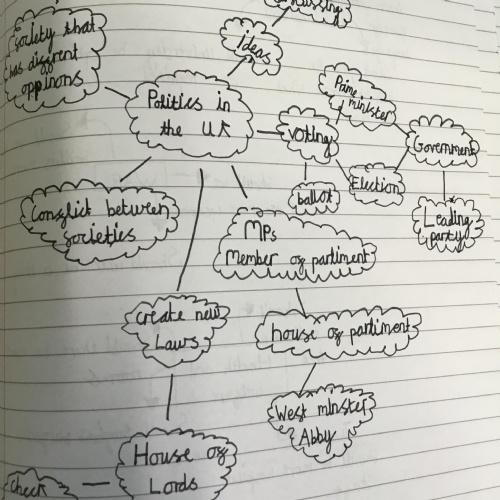 society that
has disgrent
oppinons
ideas
Politics in
the UK
Prime
minister
voting
Government
Election
ballot
Leading
party
Conglict between
societies
MPs
Member og partiment
create new
Laws
house og partiment
West minster
Abby
House og
Lords
check